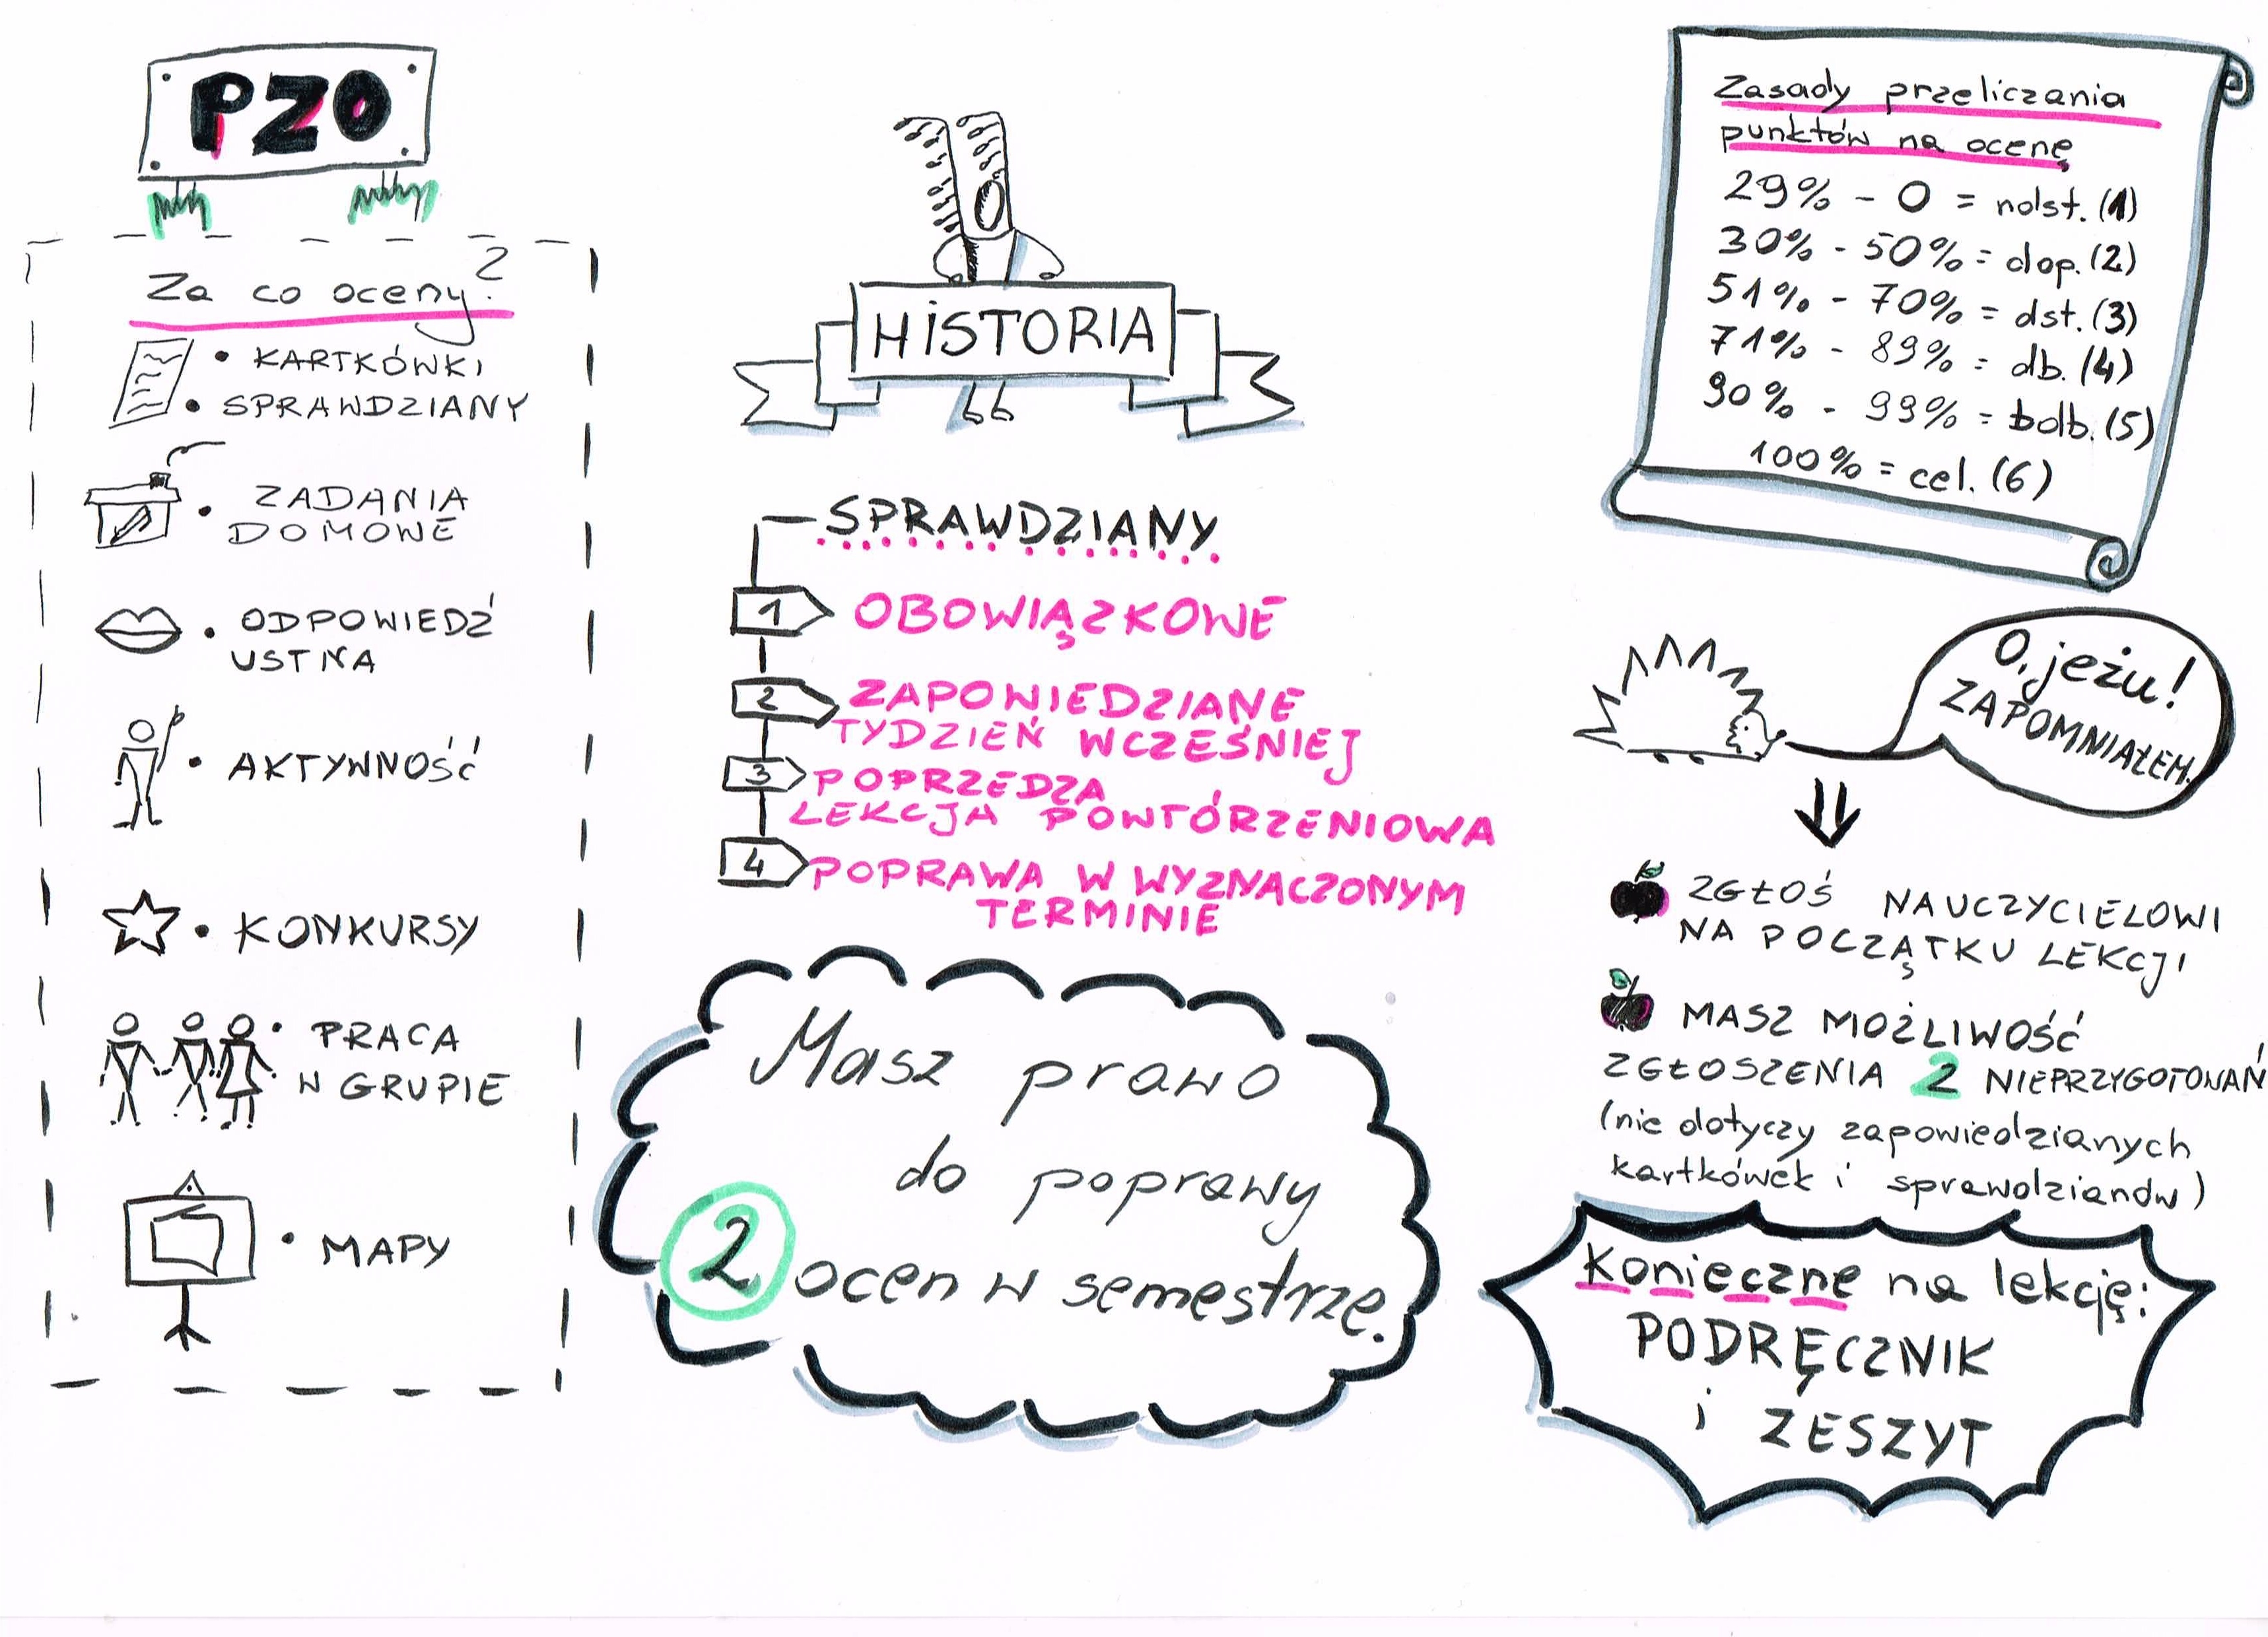 PZO
Za co oceny?
• KARTKÓWKI
• SPRAWDZIANY
• ZADANIA
DOMOWE
• ODPOWIEDŹ
USTNA
• AKTYWNOŚĆ
• KONKURSY
• PRACA
W GRUPIE
• MAPY
HISTORIA
SPRAWDZIANY
1 OBOWIĄZKOWE
2 ZAPOWIEDZIANE
TYDZIEŃ WCZEŚNIEJ
3 POPRZEDZA
LEKCJA POWTÓRZENIOWA
4 POPRAWA W WYZNACZONYM
TERMINIE
Masz prawo
do poprawy
2 ocen w semestrze.
Zasady przeliczania
punktów na ocenę
29% - 0 = ndst. (1)
30% - 50% = dop. (2)
51% - 70% = dst. (3)
71% - 89% = db. (4)
90% - 99% = bdb. (5)
100% = cel. (6)
O, jeżu!
ZAPOMNIAŁEM.
ZGŁOŚ NAUCZYCIELOWI
NA POCZĄTKU LEKCJI
MASZ MOŻLIWOŚĆ
ZGŁOSZENIA 2 NIEPRZYGOTOWAŃ
(nie dotyczy zapowiedzianych
kartkówek i sprawdzianów)
Konieczne na lekcję:
PODRĘCZNIK
i ZESZYT